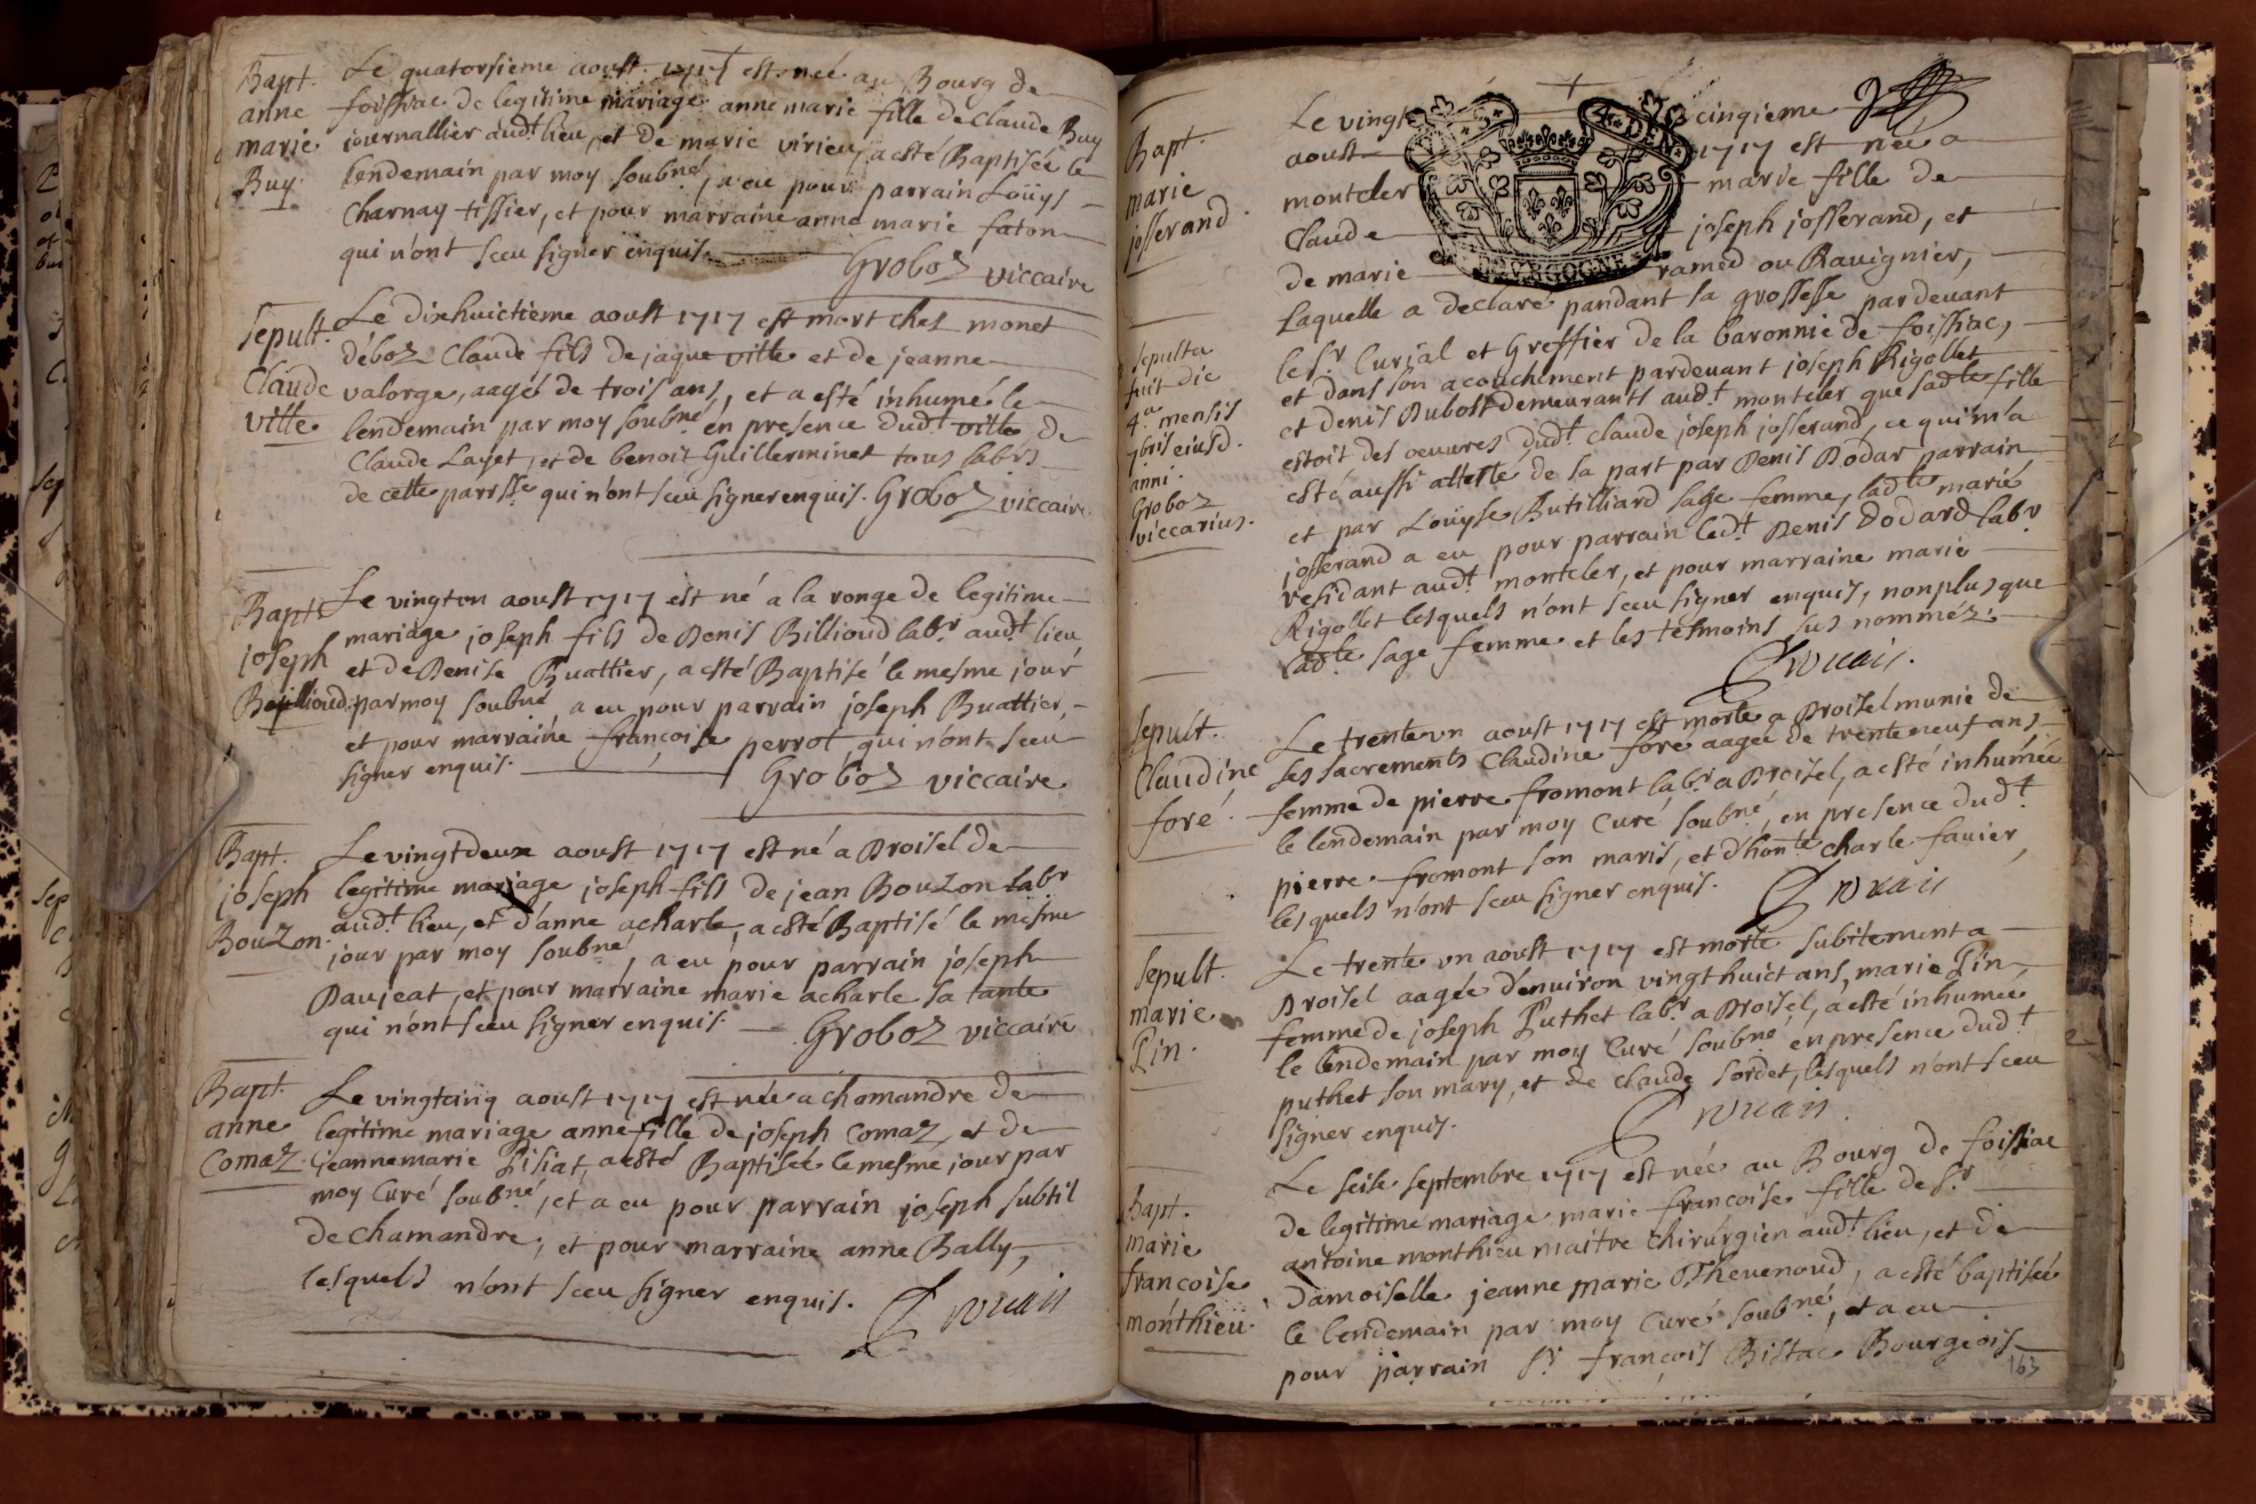 Bapt.
anne
marie
Buy.
Le quatorsieme aoust 1717 est née au Bourg de
foissiac de legitime mariage anne marie fille de Claude Buy
journallier aud.t lieu, et de marie virieu, a esté Baptisée le
lendemain par moy soubné, a eu pour parrain Loüys
Charnay tissier, et pour marraine anne marie faton
qui n'ont sceu signer enquis.
Groboz viccaire
Sepult.
Claude
ville.
Le dixhuictieme aoust 1717 est mort ches monet
déboz Claude fils de jaque ville et de jeanne
valorge, aagé de trois ans, et a esté inhumé le
lendemain par moy soubné en presence dud.t ville, de
Claude Layet, et de benoit Guilleminet tous labrs
de cette parrsse qui n'ont sceu signer enquis. Groboz viccaire
Bapt.
joseph
Billioud.
Le vingt un aoust 1717 est né a la ronge de legitime
mariage joseph fils de Denis Billioud lab.r aud.t lieu
et de Denise Buattier, a esté Baptisé le mesme jour
par moy soubné a eu pour parrain joseph Buattier,
et pour marraine françoise perrot, qui n'ont sceu
signer enquis.
Groboz viccaire.
Bapt.
joseph
Bouzon.
Le vingtdeux aoust 1717 est né a Droisel de
legitime mariage joseph fils de jean Bouzon labr
aud.t lieu, et d'anne acharle, a esté Baptisé le mesme
jour par moy soubné, a eu pour parrain joseph
Daujeat, et pour marraine marie acharle sa tante
qui n'ont sceu signer enquis. Groboz viccaire
Bapt.
anne
Comaz.
Le vingtcinq aoust 1717 est née a chamandre de
legitime mariage anne fille de joseph Comaz, et de
jeannemarie Pisiat, a esté Baptisée le mesme jour par
moy Curé soubné, et a eu pour parrain joseph subtil
de Chamandre, et pour marraine anne Bally,
lesquels n'ont sceu signer enquis.
Bapt.
marie
josserand.
Le vingt cinqieme
aoust 1717 est née a
montcler marie fille de
Claude joseph josserand, et
de marie ramed ou Rauignier,
Laquelle a declaré pandant sa grossesse pardeuant
le S.r Curial et Greffier de la baronnie de foissiac,
et dans son acouchement pardeuant joseph Rigollet
et denis Dubost demeurants aud.t montcler que sad.te fille
estoit des oeuures dud.t claude joseph josserand, ce qui m'a
esté aussi attesté de sa part par Denis Dodar parrain,
et par Loüyse Butilliard sage femme, lad.te marie
josserand a eu pour parrain led.t Denis Dodard labr
residant aud.t montcler, et pour marraine marie
Rigollet lesquels n'ont sceu signer enquis, nonplusque
lad.te sage femme et les tesmoins sus nommez.
sepulta
fuit die
4.a mensis
7bris eiusd.
anni.
Groboz
viccarius.
DE BOURGOGNE
Sepult.
Claudine
foré.
Le trente un aoust 1717 est morte a Droisel munie de
ses sacrements Claudine foré aagée de trente neuf ans
femme de pierre fromont lab.r a Droisel, a esté inhumée
le lendemain par moy Curé soubné, en presence dud.t
pierre fromont son maris, et d'hon.te charle fauier,
lesquels n'ont sceu signer enquis.
Sepult.
marie
Pin.
Le trente un aoust 1717 est morte subitement a
Droisel aagée d'enuiron vingthuict ans, marie Pin
femme de joseph Puthet lab.r a Droisel, a esté inhumée
le lendemain par moy Curé soubné en presence dud.t
puthet son mary, et de claude sordet, lesquels n'ont sceu
signer enquis.
Bapt.
marie
francoise
monthieu.
Le seise septembre 1717 est née au Bourg de foissiac
de legitime mariage marie francoise fille de S.r
antoine monthieu maitre chirurgien aud.t lieu, et de
Damoiselle jeanne marie Theuenoud, a esté baptisée
le lendemain par moy Curé soubné, et a eu
pour parrain S.r françois Bistac Bourgeois
163